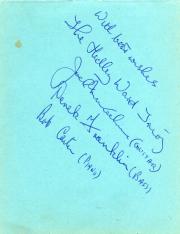 With best wishes
The Hedley Ward Trio
(GUITAR)
Derek Franklin (BASS)
Bob Carter (PIANO)